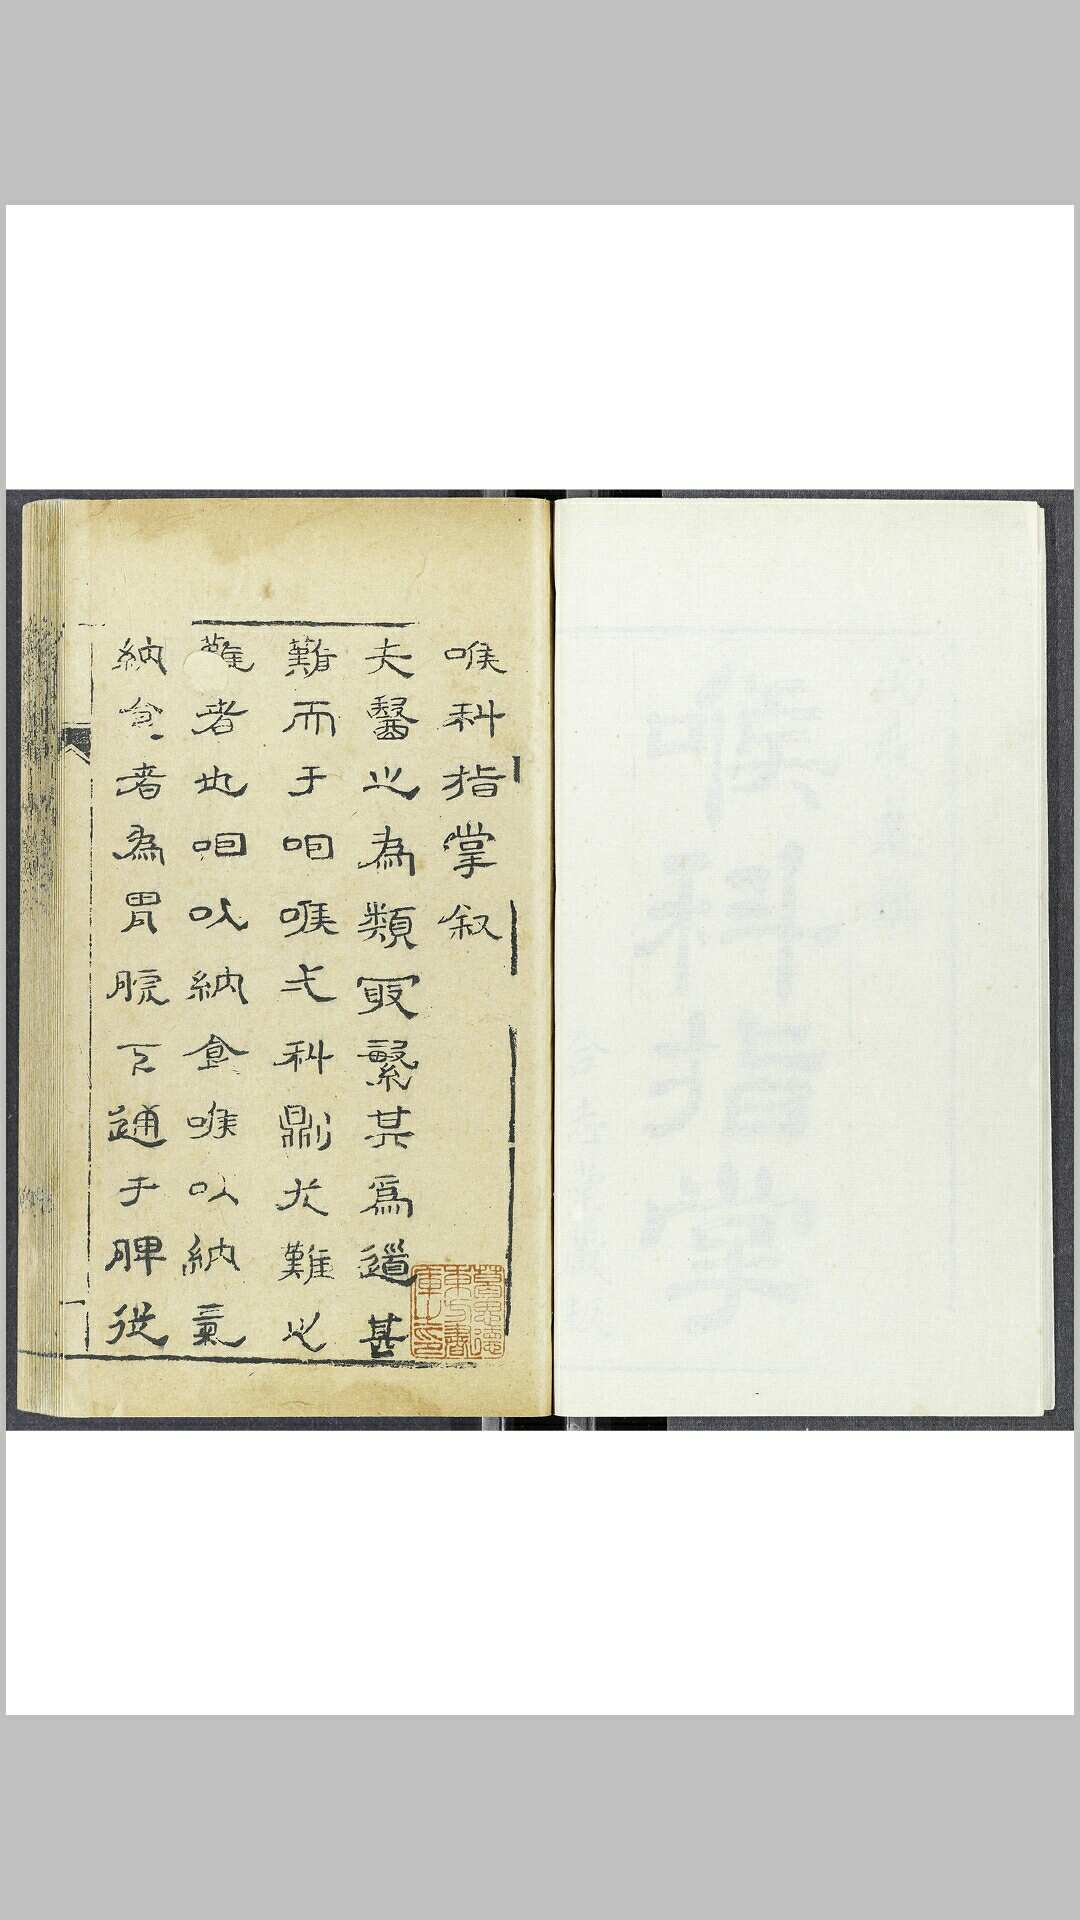 喉科指掌叙
夫醫之為類冣繁其爲道甚
難而于咽喉弌科則尤難之
難者也咽以納食喉以納氣
納食者為胃脘下通于脾從
葛思德
東方書
庫之印